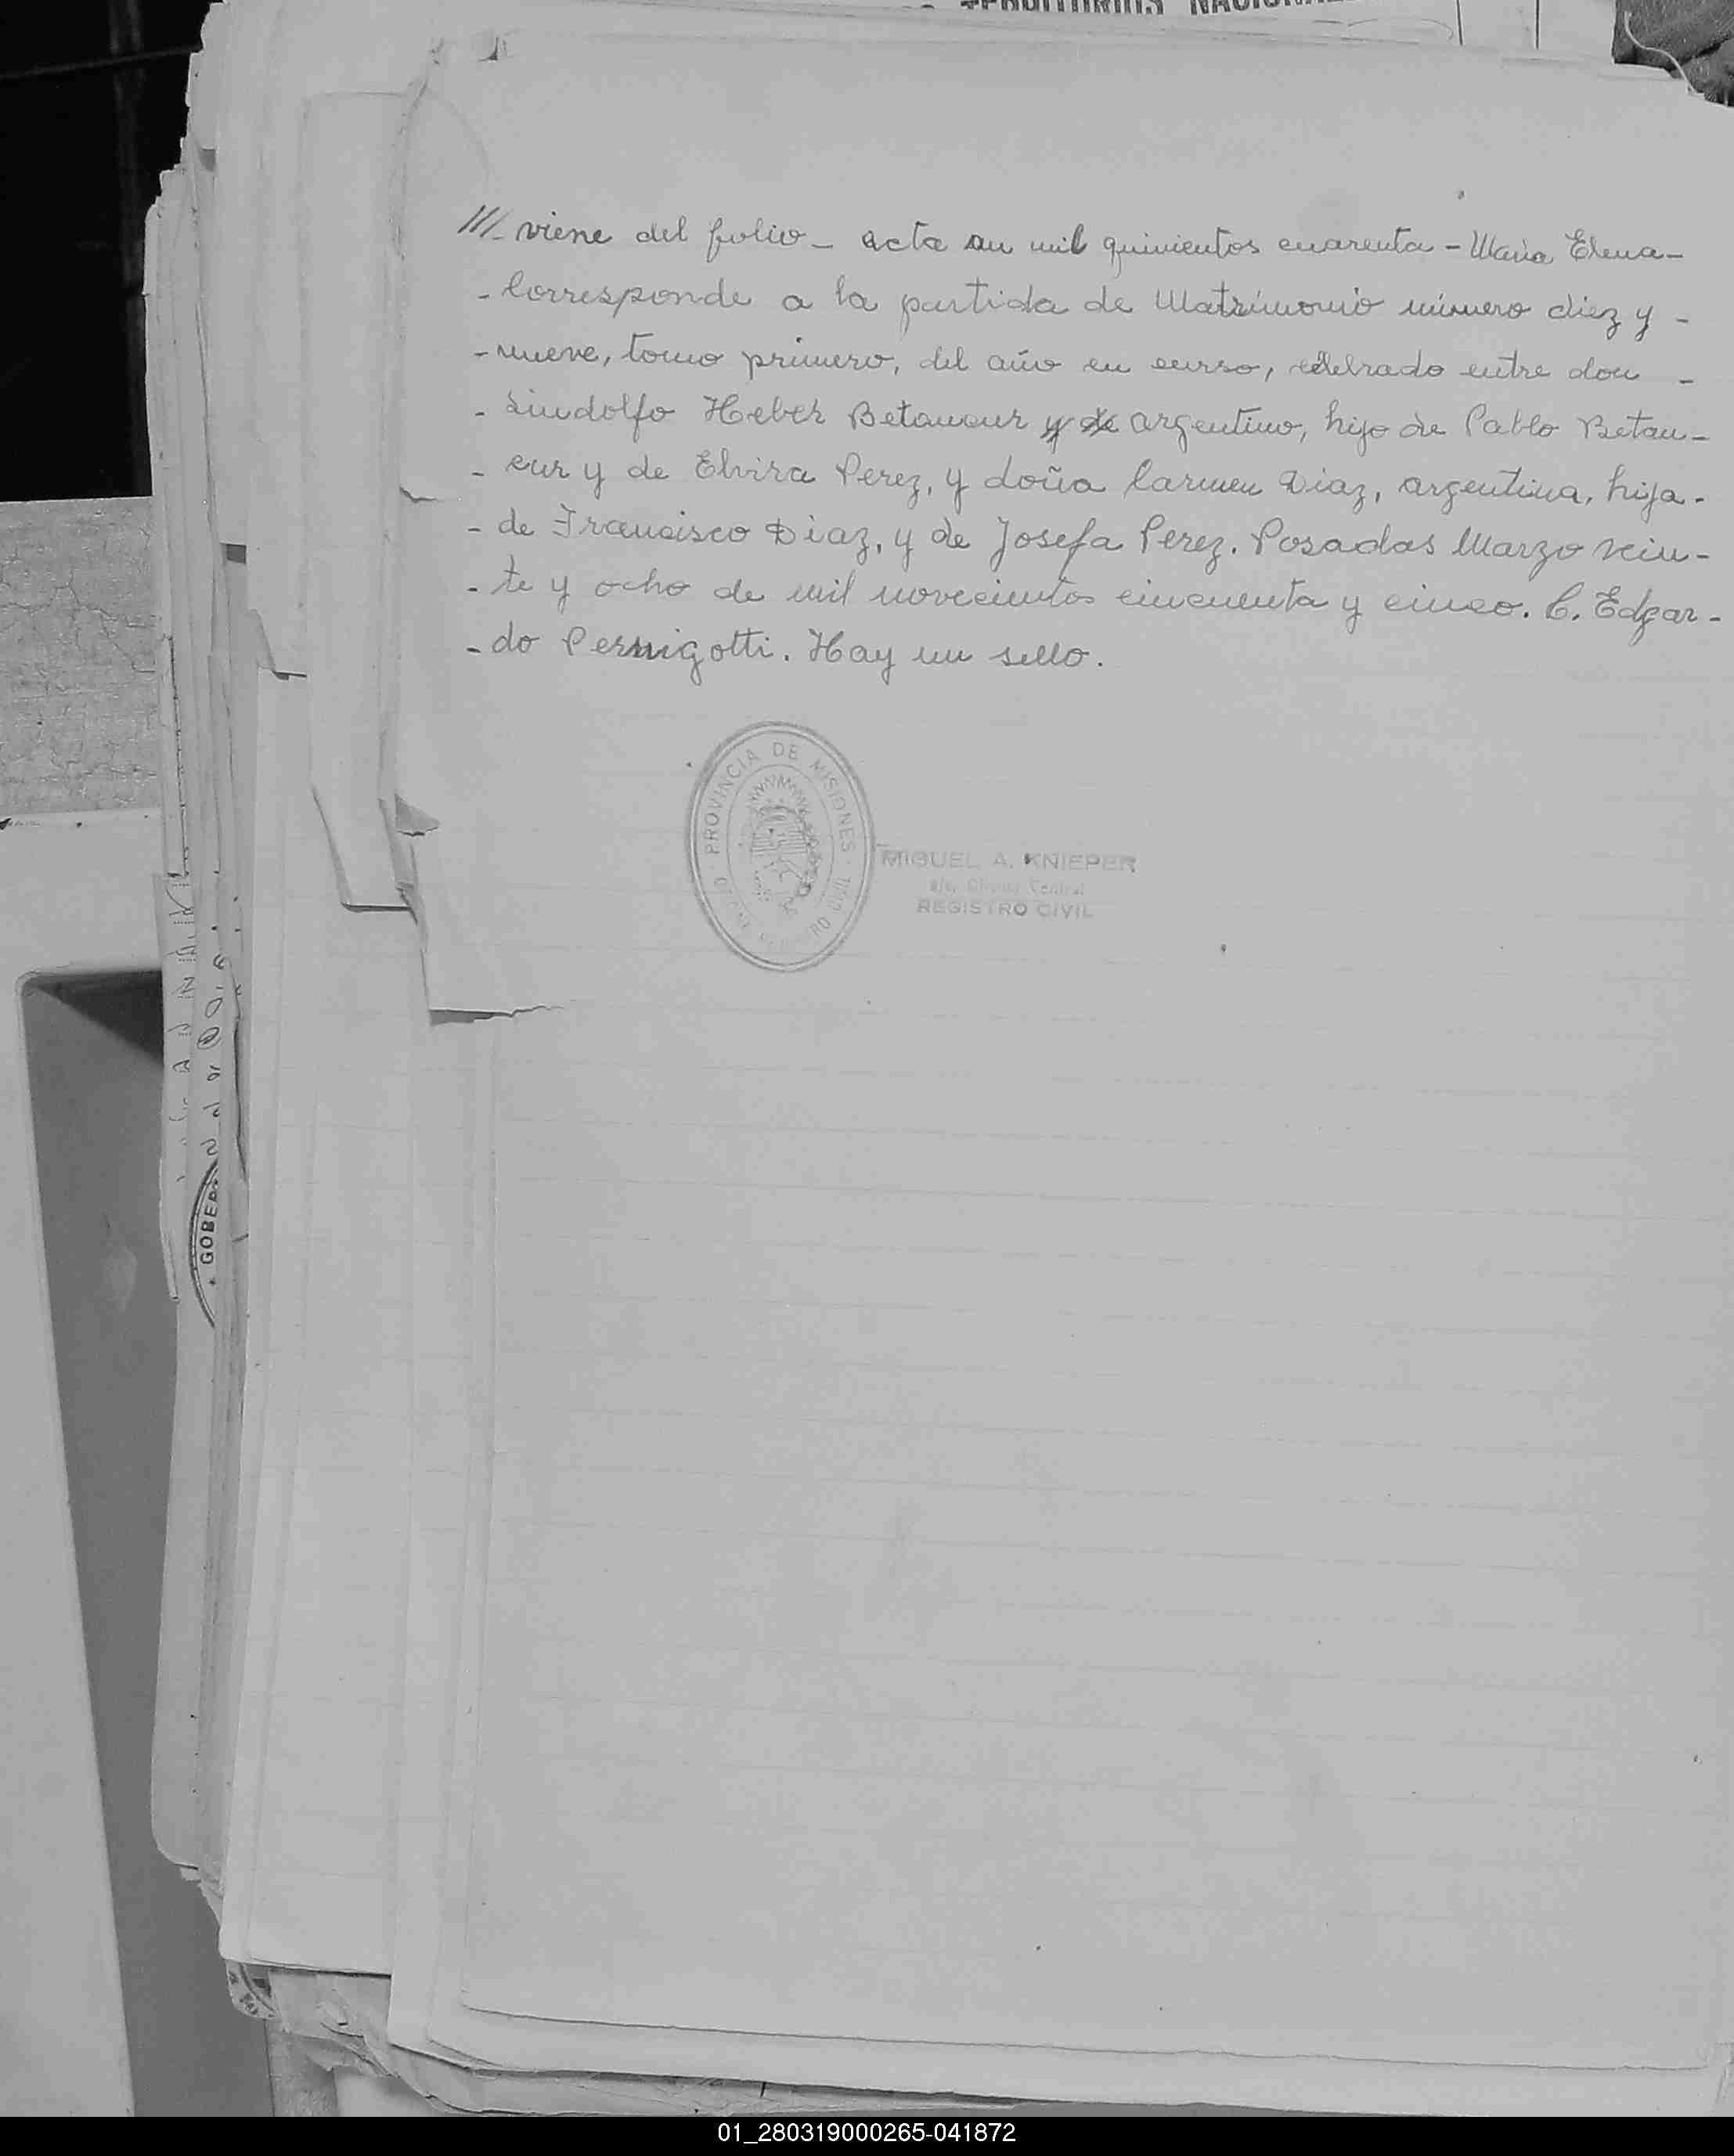 TERRITORIOS NACIONAL
/// viene del folio - acta un mil quinientos cuarenta - Maria Elena -
- Corresponde a la partida de Matrimonio número diez y -
- nueve, tomo primero, del año en curso, celebrado entre don -
- Lindolfo Heber Betancur y de argentino, hijo de Pablo Betan-
- cur y de Elvira Perez, y doña Carmen Diaz, argentina, hija -
- de Francisco Diaz, y de Josefa Perez. Posadas Marzo vein-
- te y ocho de mil novecientos cincuenta y cinco. C. Edgar-
- do Pernigotti. Hay un sello.
PROVINCIA DE MISIONES
REGISTRO CIVIL
MIGUEL A. KNIEPER
Oficina Central
REGISTRO CIVIL
GOBER
01_280319000265-041872